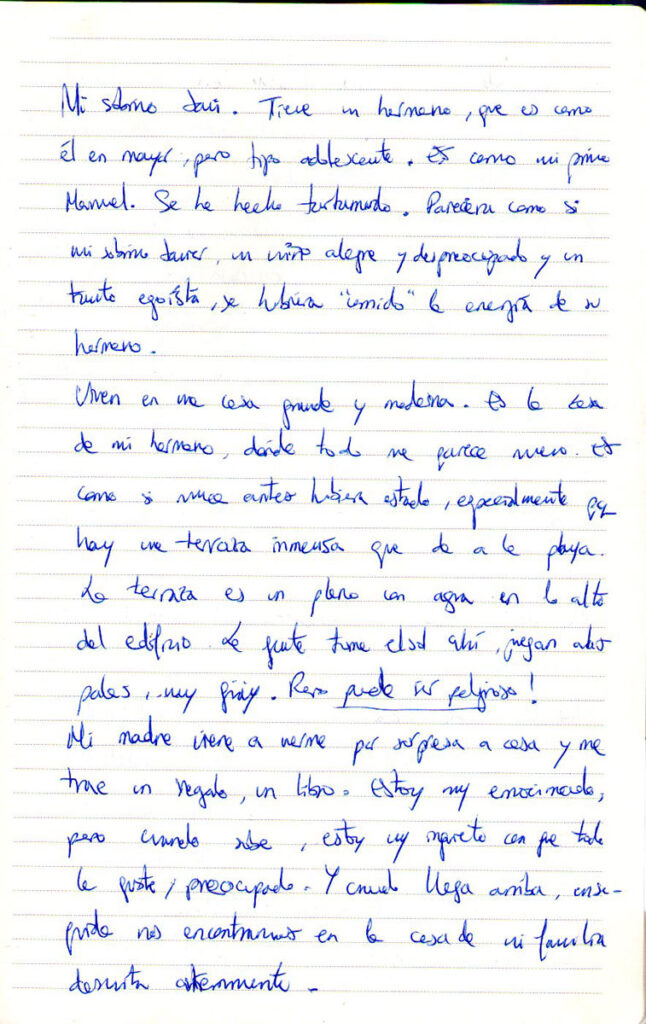 Mi sobrino Javi. Tiene un hermano, que es como
él en mayor, pero tipo adolescente. Es como mi primo
Manuel. Se ha hecho tartamudo. Pareciera como si
mi sobrino Javier, un niño alegre y despreocupado y un
tanto egoísta, se hubiera "comido" la energía de su
hermano.
Viven en una casa grande y moderna. Es la casa
de mi hermano, donde todo me parece nuevo. Es
como si nunca antes hubiera estado, especialmente pq
hay una terraza inmensa que da a la playa.
La terraza es un plano con agua en lo alto
del edificio. La gente toma el sol ahí, juegan a las
palas, muy guay. Pero puede ser peligroso!
Mi madre viene a verme por sorpresa a casa y me
trae un regalo, un libro. Estoy muy emocionado,
pero cuando sube, estoy muy inquieto con que todo
le guste, preocupado. Y cuando llega arriba, ense-
guida nos encontramos en la casa de mi familia
descrita anteriormente.